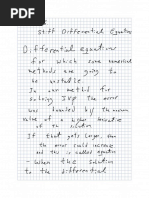 Stiff Differential Equations
Differential equations
for which some numerical
methods are going to
be unstable.
In our method for
solving IVP The error
was bounded by the
value of a higher
of the solution
If that gets larger, then
the error could increase
and this is called
When the solution
to the differential